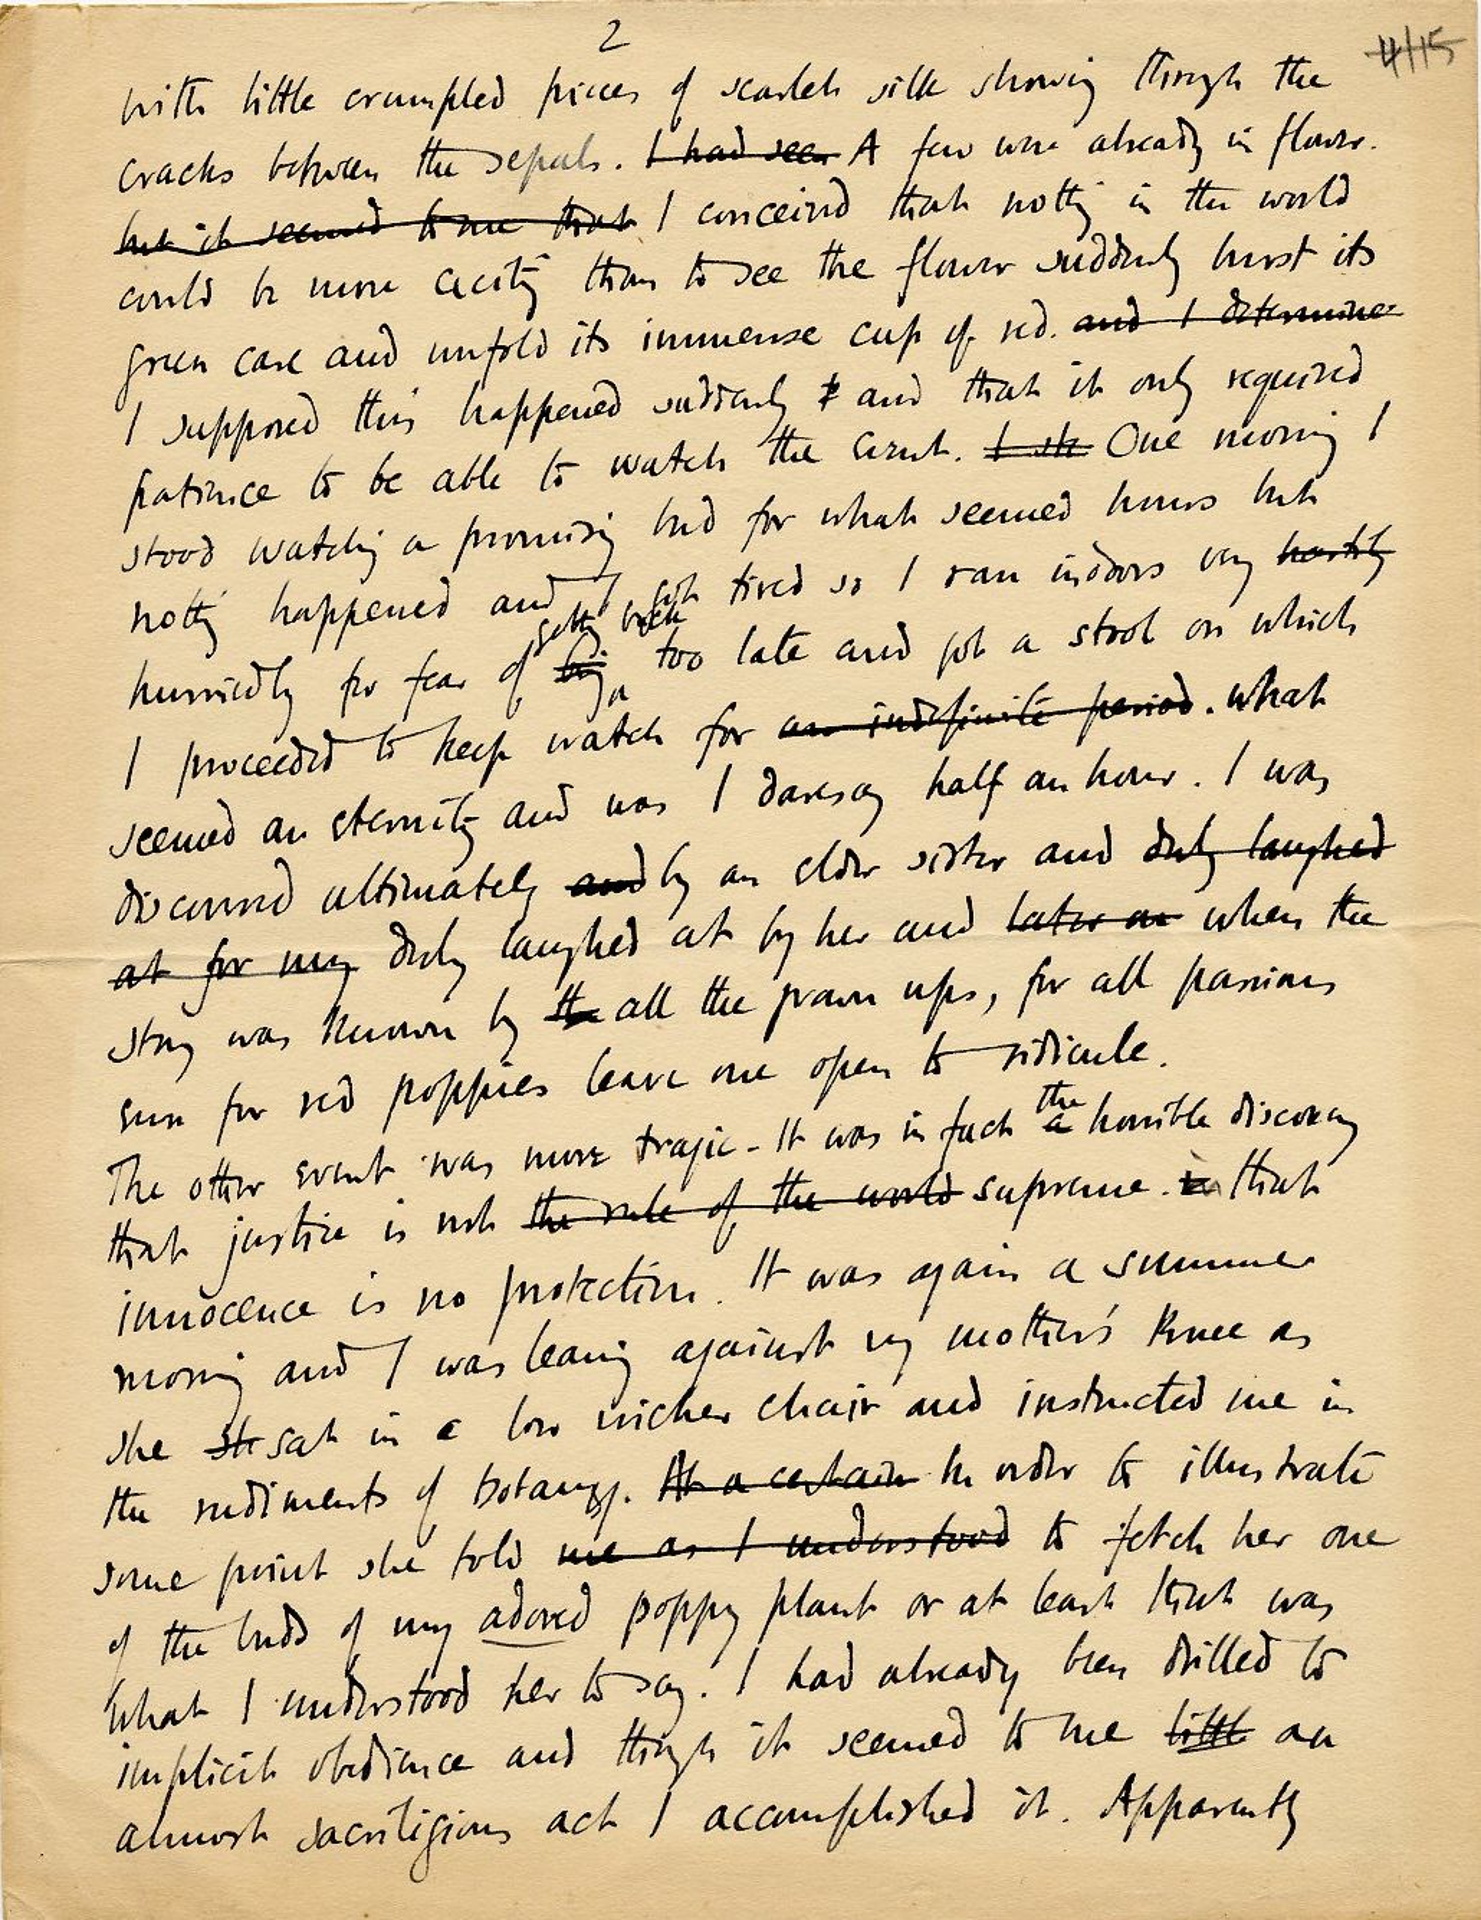 2
4/15
with little crumpled pieces of scarlet silk showing through the
cracks between the sepals. I had seen A few were already in flower.
but it seemed to me that I conceived that nothing in the world
could be more exciting than to see the flower suddenly burst its
green case and unfold its immense cup of red. and I determine
I supposed this happened suddenly & and that it only required
patience to be able to watch the event. I sh One morning I
stood watching a promising bud for what seemed hours but
nothing happened and I got tired so I ran indoors very hastily
getting back
hurriedly for fear of too late and got a stool on which
I proceeded to keep watch for an indefinite period. what
seemed an eternity and was I daresay half an hour. I was
discovered ultimately and by an elder sister and duly laughed
at for my duly laughed at by her and later on when the
story was known by the all the grown ups, for all passions
even for red poppies leave one open to ridicule.
the
The other event was more tragic - It was in fact a horrible discovery
that justice is not the rule of the world supreme. that
innocence is no protection. It was again a summer
morning and I was leaning against my mother's knee as
she st sat in a low wicker chair and instructed me in
the rudiments of botany. At a certain In order to illustrate
some point she told me as I understood to fetch her one
of the buds of my adored poppy plant or at least that was
what I understood her to say. I had already been drilled to
implicit obedience and though it seemed to me little an
almost sacriligious act I accomplished it. Apparently